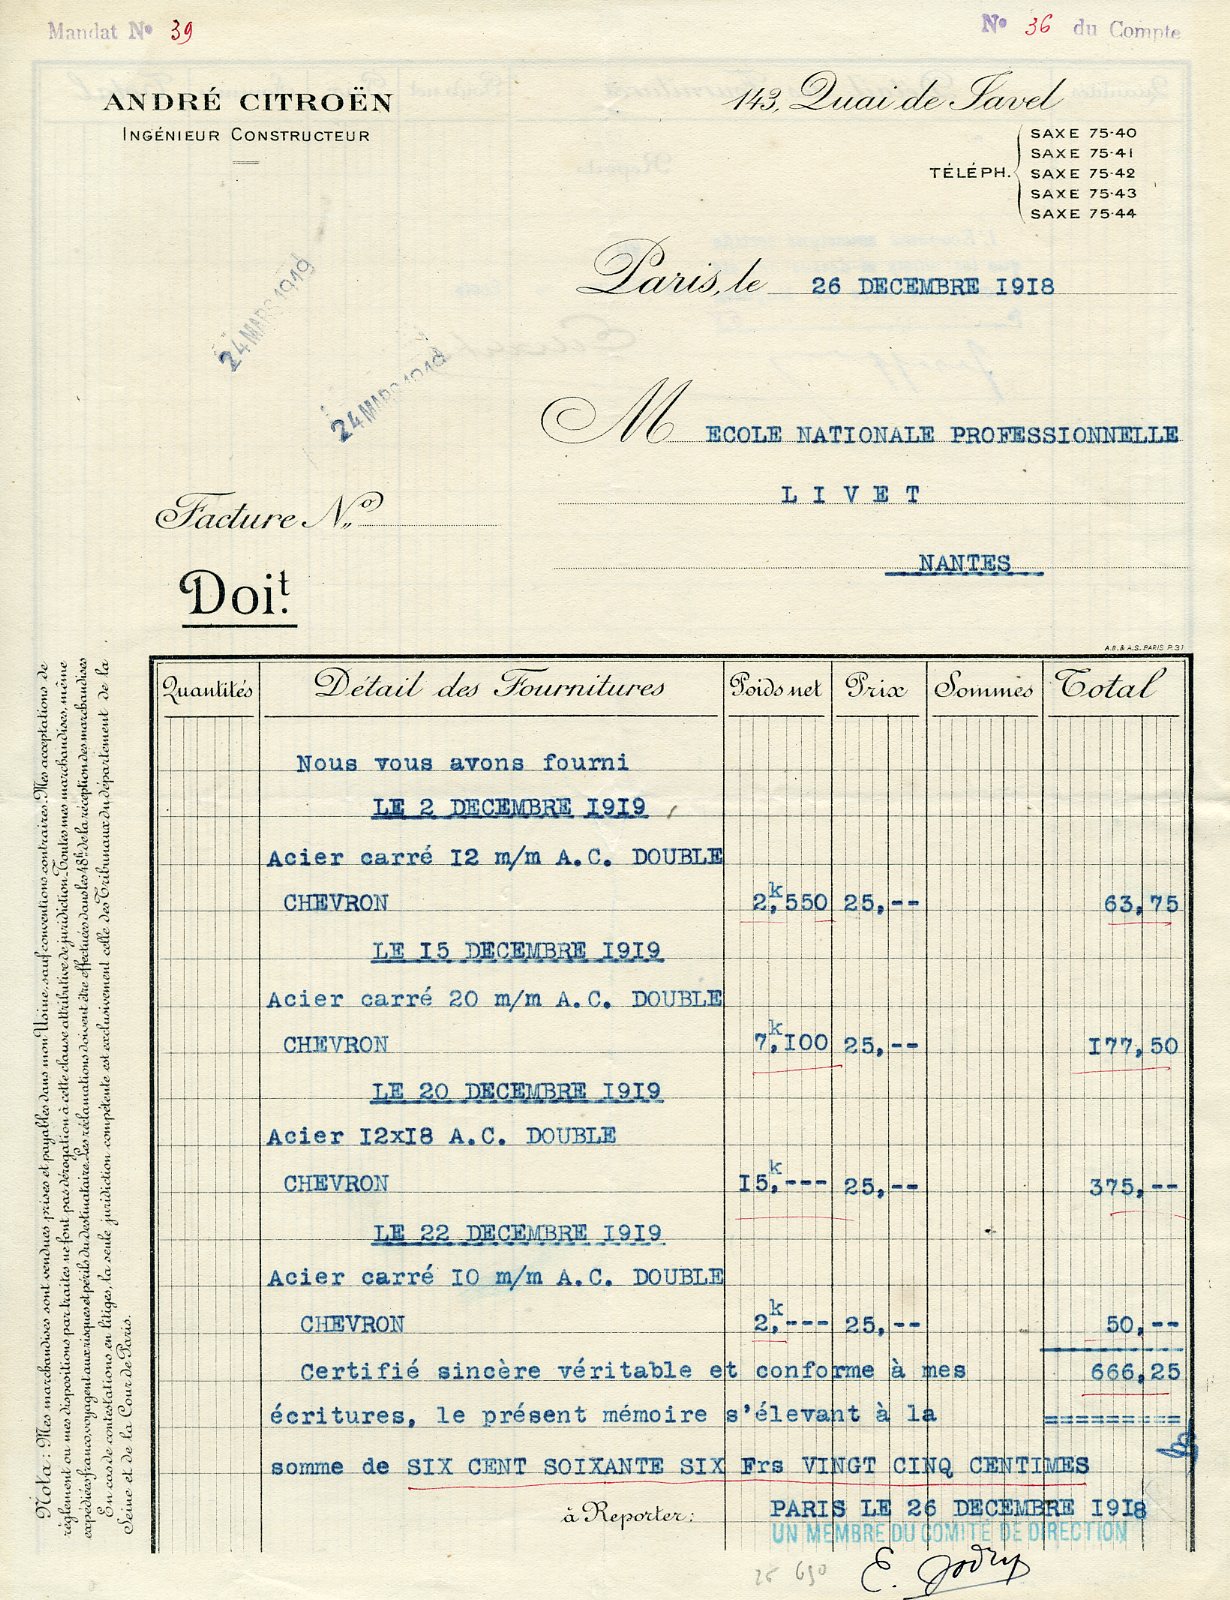 Mandat Nº 39
Nº 36 du Compte
ANDRÉ CITROËN
INGÉNIEUR CONSTRUCTEUR
143, Quai de Javel
TÉLÉPH.
SAXE 75-40
SAXE 75-41
SAXE 75-42
SAXE 75-43
SAXE 75-44
24 MARS 1919
24 MARS 1919
Paris, le 26 DECEMBRE 1918
M ECOLE NATIONALE PROFESSIONNELLE
LIVET
NANTES
Facture Nº
Doit.
A.B. & A.S. PARIS P. 31
Quantités Détail des Fournitures Poids net Prix Sommes Total
Nous vous avons fourni
LE 2 DECEMBRE 1919
Acier carré 12 m/m A.C. DOUBLE
CHEVRON 2k,550 25,-- 63,75
LE 15 DECEMBRE 1919
Acier carré 20 m/m A.C. DOUBLE
CHEVRON 7k,100 25,-- 177,50
LE 20 DECEMBRE 1919
Acier 12x18 A.C. DOUBLE
CHEVRON 15k,--- 25,-- 375,--
LE 22 DECEMBRE 1919
Acier carré 10 m/m A.C. DOUBLE
CHEVRON 2k,--- 25,-- 50,--
Certifié sincère véritable et conforme à mes 666,25
écritures, le présent mémoire s'élevant à la =========
somme de SIX CENT SOIXANTE SIX Frs VINGT CINQ CENTIMES
à Reporter: PARIS LE 26 DECEMBRE 1918
UN MEMBRE DU COMITÉ DE DIRECTION
Nota: Mes marchandises sont vendues prises et payables dans mon Usine, sauf conventions contraires. Mes acceptations de
règlement ou mes dispositions par traites ne font pas dérogation à cette clause attributive de juridiction. Toutes mes marchandises, même
expédiées franco, voyagent aux risques et périls du destinataire. Les réclamations doivent être effectuées dans les 48h de la réception des marchandises
En cas de contestations en litiges, la seule juridiction compétente est exclusivement celle des Tribunaux du département de la
Seine et de la Cour de Paris.